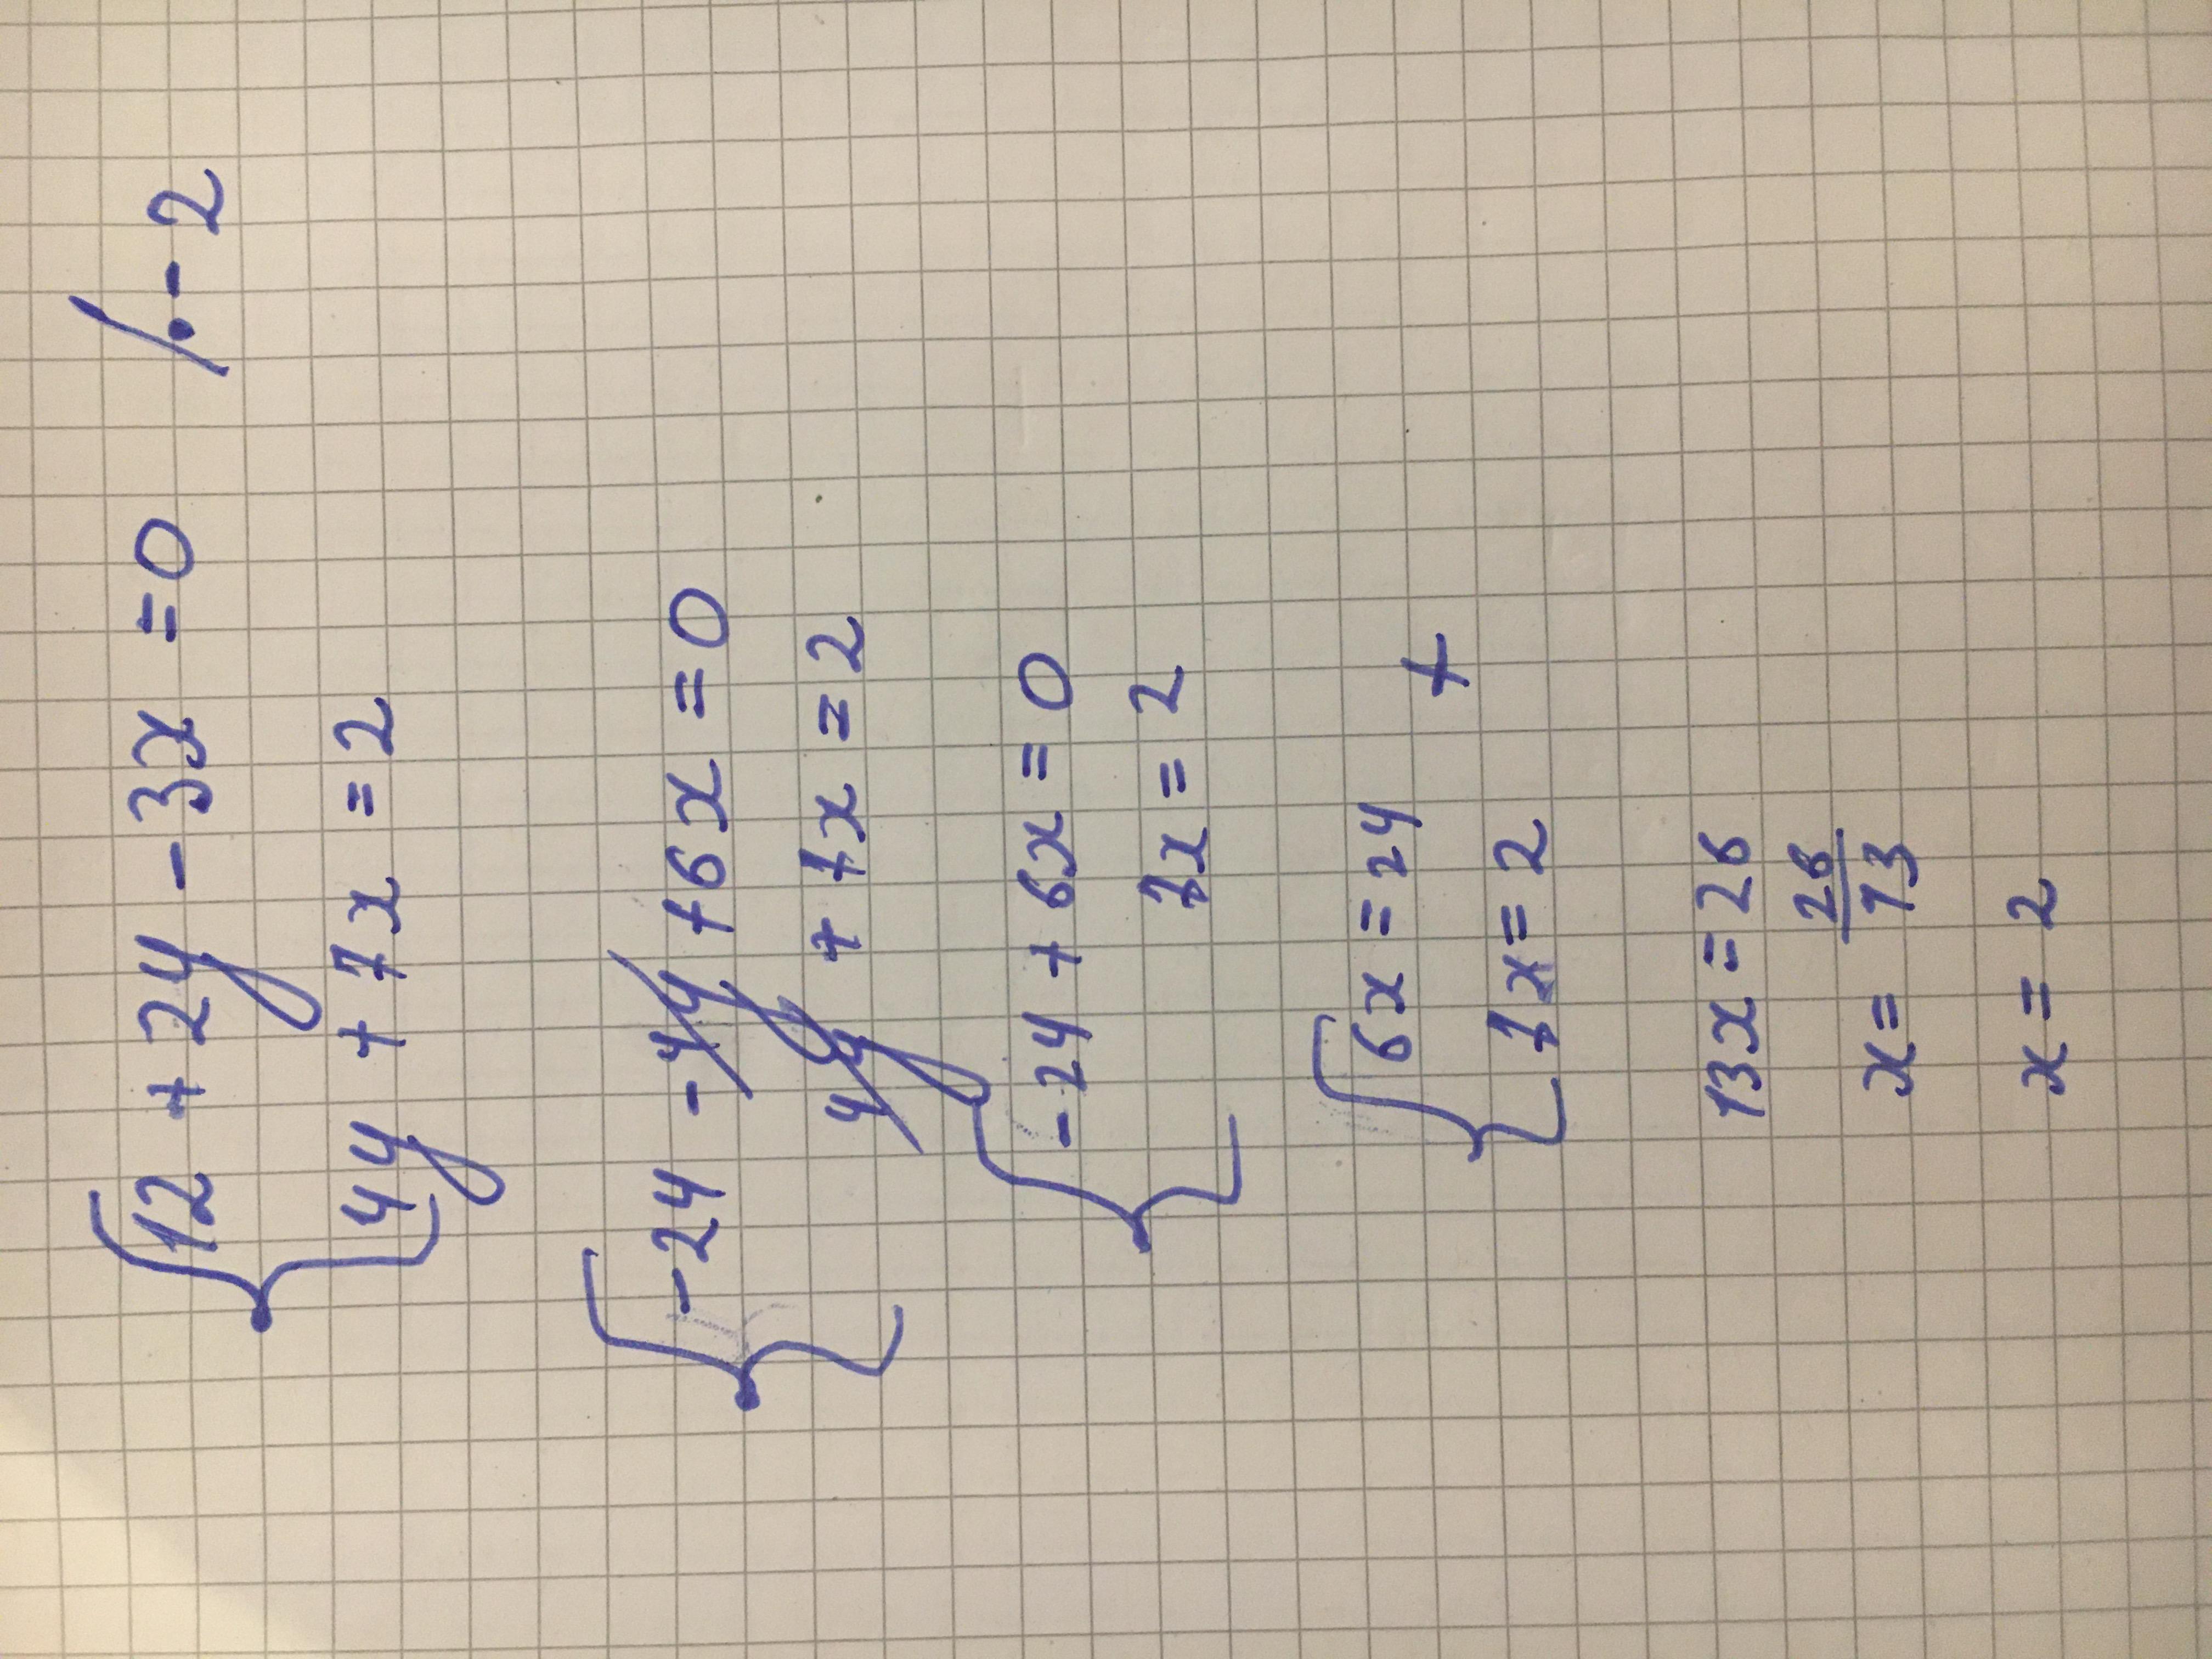 12 + 2y - 3x = 0 /·-2
4y + 7x = 2
-24 - 4y + 6x = 0
4y + 7x = 2
-24 + 6x = 0
7x = 2
6x = 24
+
7x = 2
13x = 26
x = 26/13
x = 2